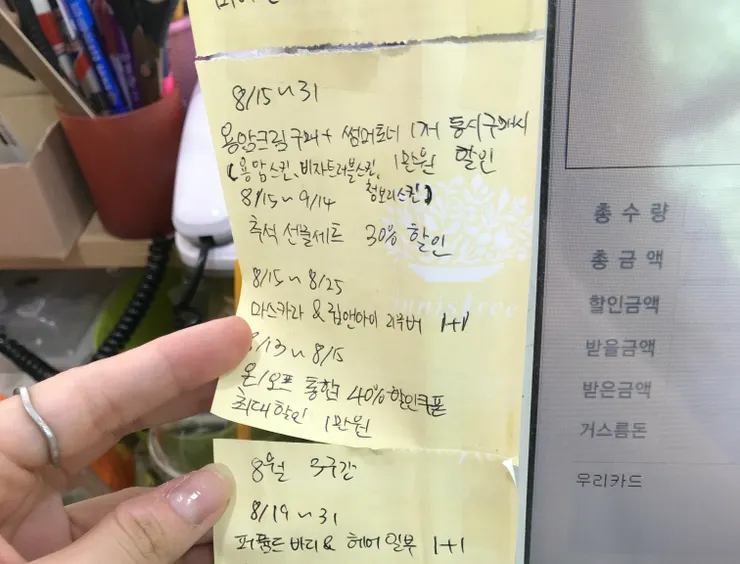 8/15 ~ 31
용암크림 구매 + 썸머토너 1개 동시구매시
(용암스킨, 비자트러블스킨, 1만원 할인
청보리스킨)
8/15 ~ 9/14
추석 선물세트 30% 할인
8/15 ~ 8/25
마스카라 & 립앤아이 리무버 1+1
8/13 ~ 8/15
온/오프 통합 40% 할인쿠폰
최대할인 1만원
8월
8/19 ~ 31
퍼퓸드 바디 & 헤어 일부 1+1
innisfree
총 수 량
총 금 액
할인금액
받을금액
받은금액
거스름돈
우리카드